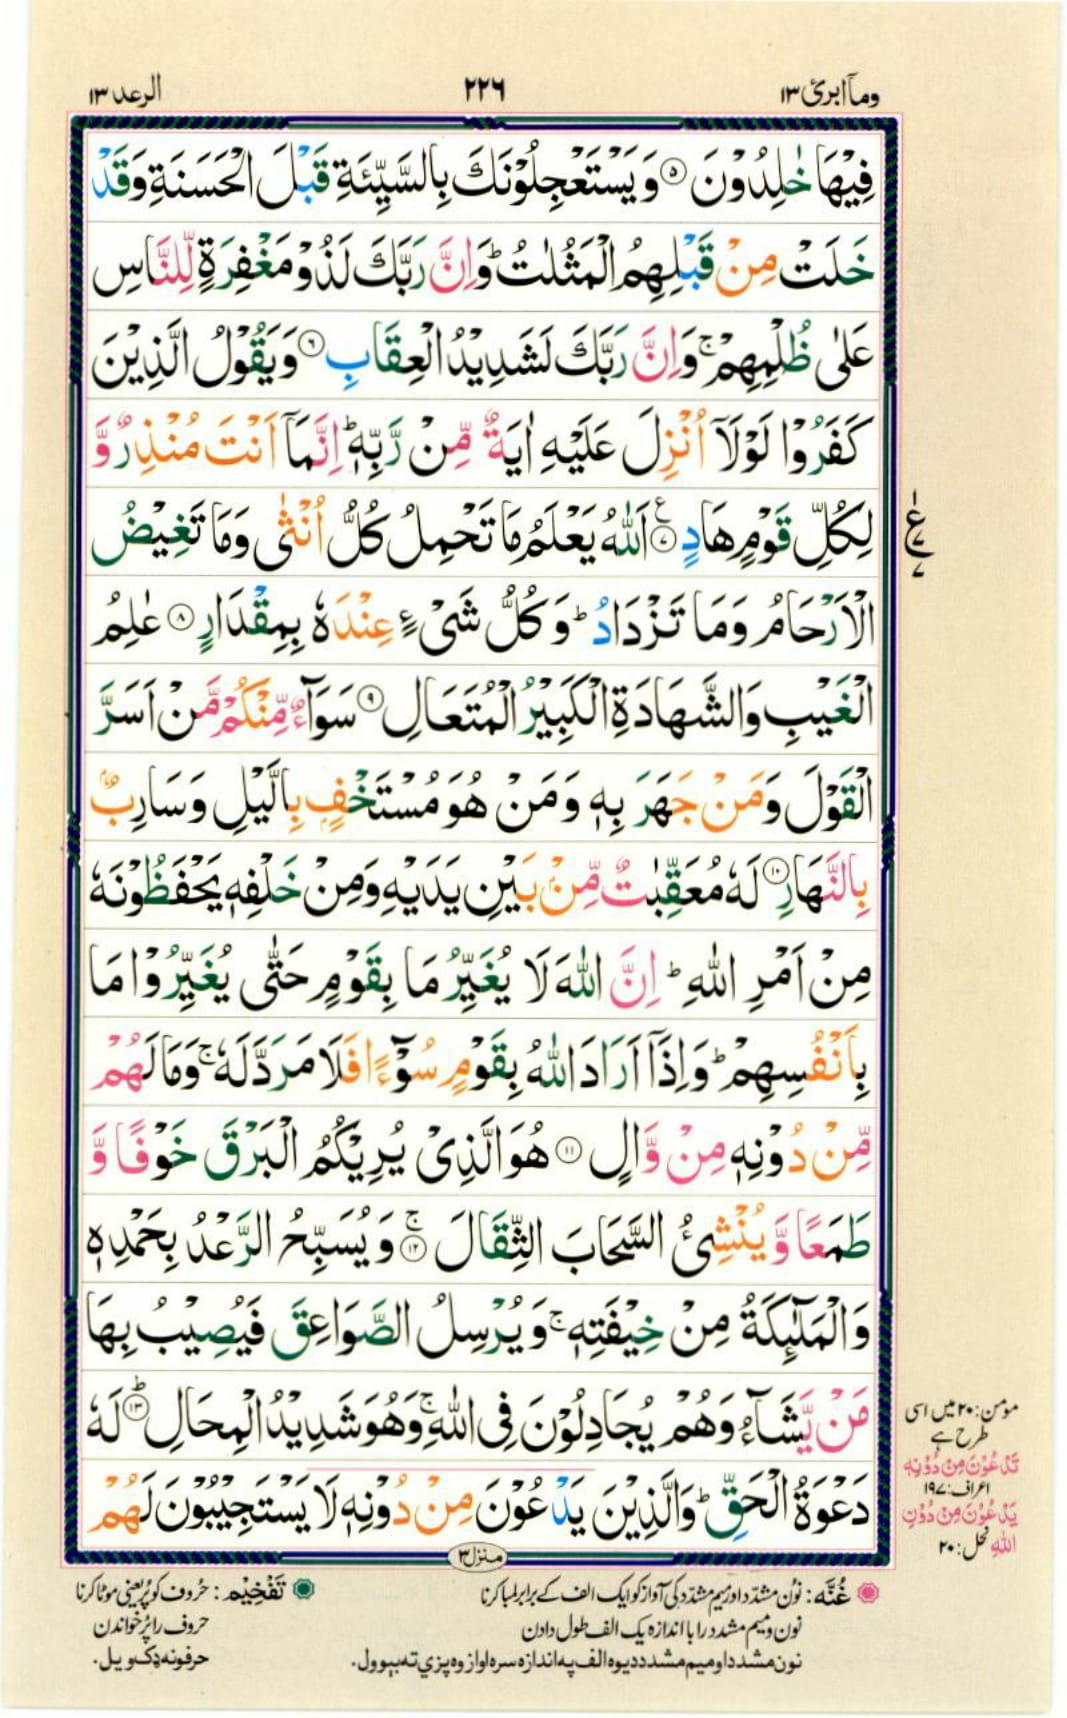 ومآ ابرئ ١٣
٢٢٦
الرعد ١٣
فِيْهَا خٰلِدُوْنَ ۵ وَيَسْتَعْجِلُوْنَكَ بِالسَّيِّئَةِ قَبْلَ الْحَسَنَةِ وَقَدْ
خَلَتْ مِنْ قَبْلِهِمُ الْمَثُلٰتُ ؕ وَاِنَّ رَبَّكَ لَذُوْ مَغْفِرَةٍ لِّلنَّاسِ
عَلٰى ظُلْمِهِمْ ۚ وَاِنَّ رَبَّكَ لَشَدِيْدُ الْعِقَابِ ۶ وَيَقُوْلُ الَّذِيْنَ
كَفَرُوْا لَوْلَاۤ اُنْزِلَ عَلَيْهِ اٰيَةٌ مِّنْ رَّبِّهٖ ؕ اِنَّمَاۤ اَنْتَ مُنْذِرٌ وَّ
لِكُلِّ قَوْمٍ هَادٍ ۷ اَللّٰهُ يَعْلَمُ مَا تَحْمِلُ كُلُّ اُنْثٰى وَمَا تَغِيْضُ
الْاَرْحَامُ وَمَا تَزْدَادُ ؕ وَكُلُّ شَيْءٍ عِنْدَهٗ بِمِقْدَارٍ ۸ عٰلِمُ
الْغَيْبِ وَالشَّهَادَةِ الْكَبِيْرُ الْمُتَعَالِ ۹ سَوَآءٌ مِّنْكُمْ مَّنْ اَسَرَّ
الْقَوْلَ وَمَنْ جَهَرَ بِهٖ وَمَنْ هُوَ مُسْتَخْفٍۭ بِالَّيْلِ وَسَارِبٌۢ
بِالنَّهَارِ ۱۰ لَهٗ مُعَقِّبٰتٌ مِّنْۢ بَيْنِ يَدَيْهِ وَمِنْ خَلْفِهٖ يَحْفَظُوْنَهٗ
مِنْ اَمْرِ اللّٰهِ ؕ اِنَّ اللّٰهَ لَا يُغَيِّرُ مَا بِقَوْمٍ حَتّٰى يُغَيِّرُوْا مَا
بِاَنْفُسِهِمْ ؕ وَاِذَاۤ اَرَادَ اللّٰهُ بِقَوْمٍ سُوْٓءًا فَلَا مَرَدَّ لَهٗ ۚ وَمَا لَهُمْ
مِّنْ دُوْنِهٖ مِنْ وَّالٍ ۱۱ هُوَ الَّذِيْ يُرِيْكُمُ الْبَرْقَ خَوْفًا وَّ
طَمَعًا وَّيُنْشِئُ السَّحَابَ الثِّقَالَ ۱۲ۚ وَيُسَبِّحُ الرَّعْدُ بِحَمْدِهٖ
وَالْمَلٰٓئِكَةُ مِنْ خِيْفَتِهٖ ۚ وَيُرْسِلُ الصَّوَاعِقَ فَيُصِيْبُ بِهَا
مَنْ يَّشَآءُ وَهُمْ يُجَادِلُوْنَ فِى اللّٰهِ ۚ وَهُوَ شَدِيْدُ الْمِحَالِ ۱۳ؕ لَهٗ
دَعْوَةُ الْحَقِّ ؕ وَالَّذِيْنَ يَدْعُوْنَ مِنْ دُوْنِهٖ لَا يَسْتَجِيْبُوْنَ لَهُمْ
ع
۷
۷
مومن: ۲۰ میں اسی
طرح ہے
تَدْعُوْنَ مِنْ دُوْنِهٖ
اعراف: ۱۹۷
يَدْعُوْنَ مِنْ دُوْنِ
اللّٰهِ نحل: ۲۰
منزل۳
غُنَّه: نون مشدّد اور میم مشدّد کی آواز کو ایک الف کے برابر لمبا کرنا
نون و میم مشدد را با اندازه یک الف طول دادن
نون مشدد او میم مشدد دیوه الف په اندازه سره اواز وه پزې ته بېوول.
تَفْخِيْم: حُروف کو پُر یعنی موٹا کرنا
حروف را پُر خواندن
حرفونه ډک ویل.